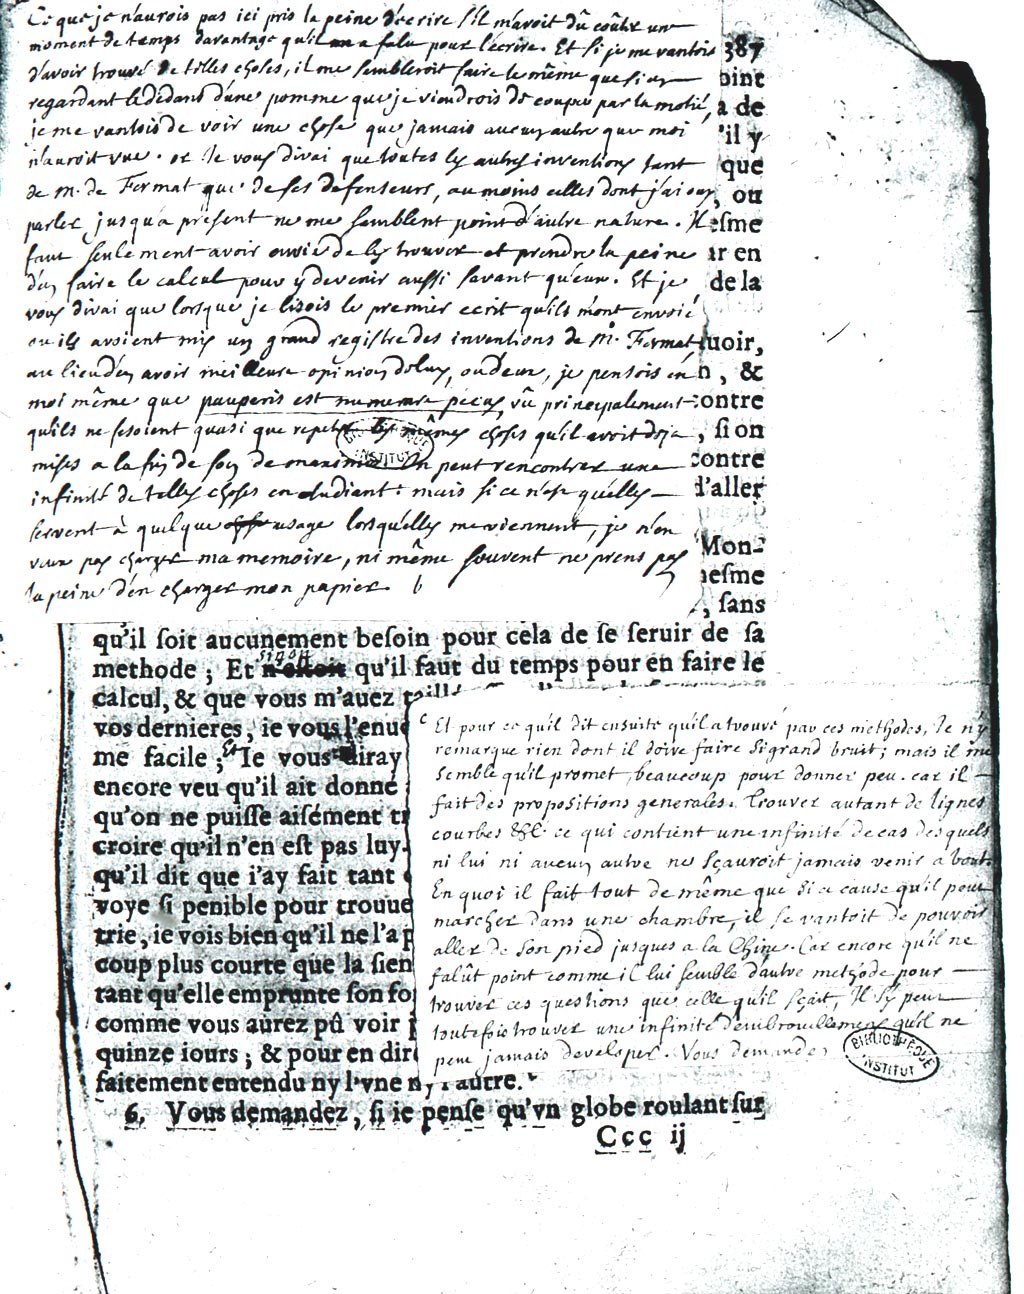 Ce que je n'aurois pas ici pris la peine d'écrire s'il m'avoit dû coûter un
moment de temps davantage qu'il m'en a falu pour l'écrire. Et si je me vantois
d'avoir trouvé de telles choses, il me sembleroit faire le même que si en
regardant le dedans d'une pomme que je viendrois de couper par la moitié,
je me vantois de voir une chose que jamais aucun autre que moi
n'auroit vue. or Je vous dirai que toutes les autres inventions tant
de m. de Fermat que de ses defenseurs, au moins celles dont j'ai ouy
parler jusqu'a présent ne me semblent point d'autre nature. Il
faut seulement avoir envie de les trouver et prendre la peine
d'en faire le calcul pour y devenir aussi savant qu'eux. Et je
vous dirai que lorsque je lisois le premier ecrit qu'ils m'ont envoié
ou ils avoient mis un grand registre des inventions de Mr. Fermat
au lieu d'en avoir meilleure opinion de luy, ou d'eux, je pensois en
moi même que pauperis est numerare pecus, vû principalement
qu'ils ne fesoient quasi que repeter les mêmes choses qu'il avoit deja
mises a la fin de son de maximis On peut rencontrer une
infinité de telles choses en etudiant: mais si ce n'est qu'elles
servent à quelque usage lorsqu'elles me viennent, je n'en
veux pas charger ma memoire, ni même souvent ne prens pas
la peine d'en charger mon papier. b
387
oint
a de
'il y
que
, ou
esme
ir en
de la
uoir,
n, &
contre
, si on
contre
d'aller
Mon-
mesme
, sans
BIBLIOTHEQUE
INSTITUT
qu'il soit aucunement besoin pour cela de se seruir de sa
methode; Et sinon n'estoit qu'il faut du temps pour en faire le
calcul, & que vous m'auez taillé
vos dernieres, ie vous l'enuo
me facile; Et Ie vous diray
encore veu qu'il ait donné
qu'on ne puisse aisément tr
croire qu'il n'en est pas luy-
qu'il dit que i'ay fait tant
voye si penible pour trouue
trie, ie vois bien qu'il ne l'a p
coup plus courte que la sien
tant qu'elle emprunte son fo
comme vous aurez pû voir
quinze iours; & pour en dire
faitement entendu ny l'vne ny l'autre. c
6. Vous demandez, si ie pense qu'vn globe roulant sur
Ccc ij
c Et pour ce qu'il dit ensuite qu'il a trouvé par ces méthodes, Je n'y
remarque rien dont il doive faire si grand bruit; mais il me
semble qu'il promet beaucoup pour donner peu. car il
fait des propositions generales. Trouver autant de lignes
courbes &c. ce qui contient une infinité de cas desquels
ni lui ni aucun autre ne sçauroit jamais venir a bout.
En quoi il fait tout de même que si a cause qu'il peut
marcher dans une chambre, il se vantoit de pouvoir
aller de son pied jusques a la Chine. Car encore qu'il ne
falût point comme il lui semble d'autre methode pour
trouver ces questions que celle qu'il sçait, Il s'y peut
toutefois trouver une infinité d'embrouillemens qu'il ne
peut jamais developer. Vous demandez
BIBLIOTHEQUE
INSTITUT